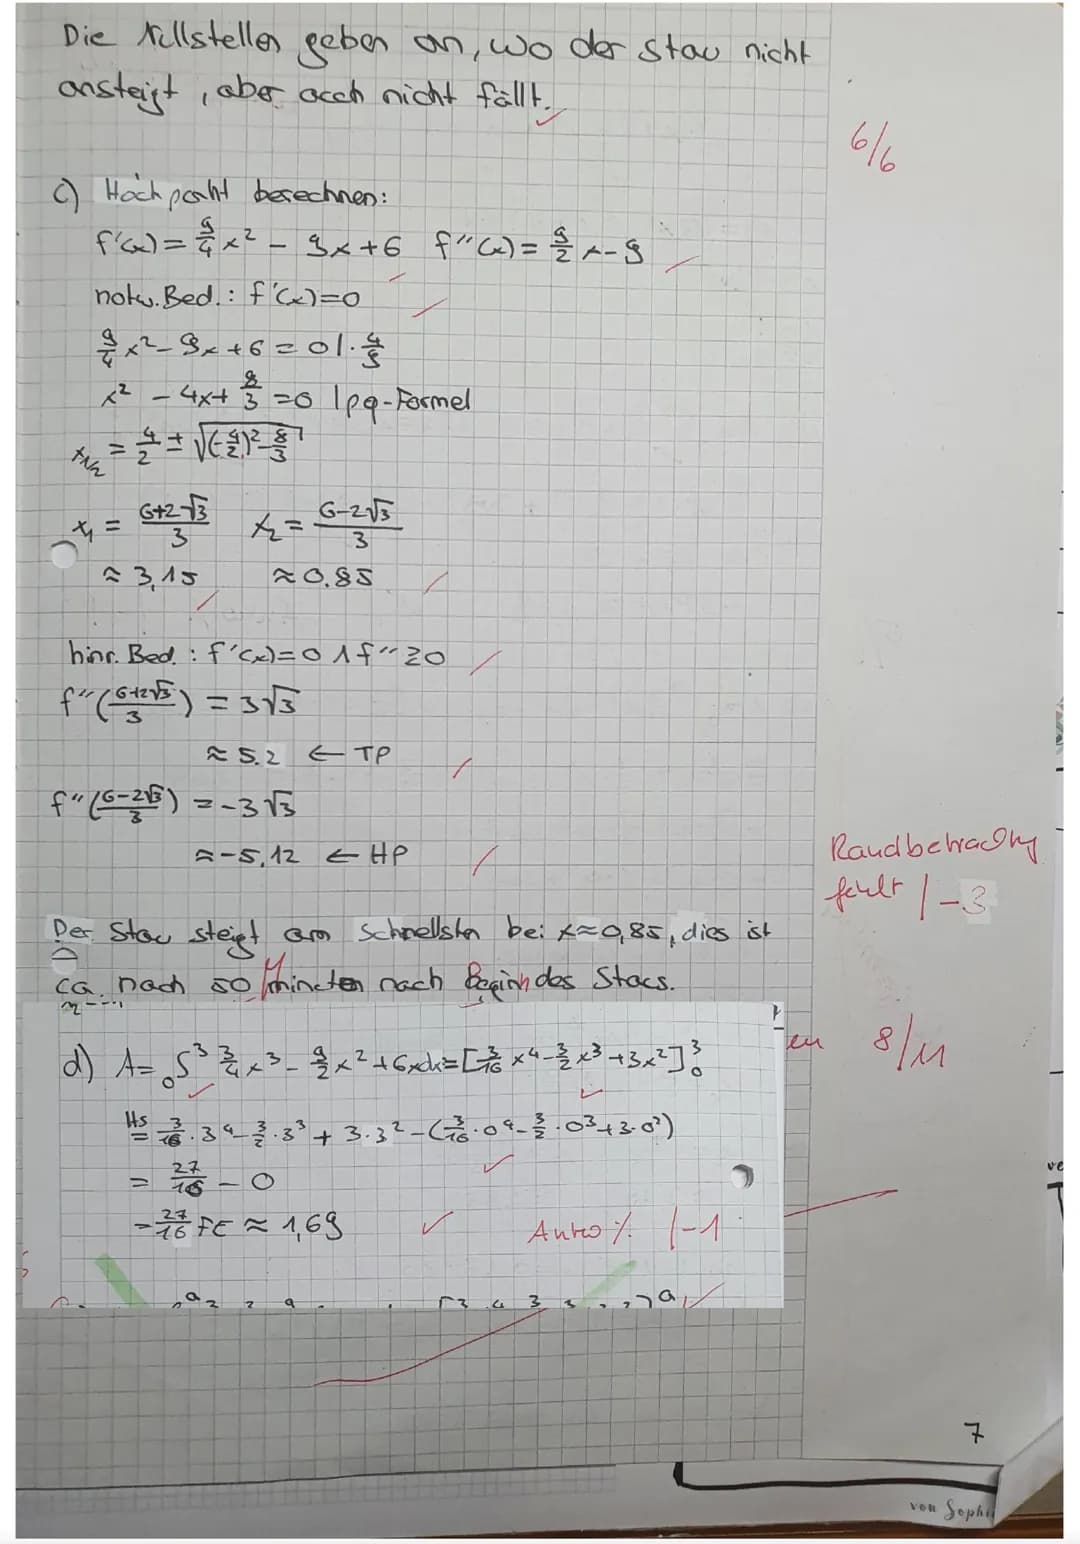 Die Nullstellen geben an, wo der Stau nicht
ansteigt, aber auch nicht fällt.
6/6
c) Hochpunkt berechnen:
f'(x) = 9/4 x² - 9x + 6 f''(x) = 9/2 x - 9
notw. Bed.: f'(x)=0
9/4 x² - 9x + 6 = 0 | · 4/9
x² - 4x + 8/3 = 0 | pq-Formel
x1/2 = 4/2 ± √((-4/2)² - 8/3)
x1 = (6+2√3)/3 x2 = (6-2√3)/3
≈ 3,15 ≈ 0.85
hinr. Bed.: f'(x)=0 ∧ f''≷0
f''((6+2√3)/3) = 3√3
≈ 5.2 ← TP
f''((6-2√3)/3) = -3√3
≈ -5,12 ← HP
Randbetrachtung
fehlt /-3
Der Stau steigt am schnellsten bei x≈0,85, dies ist
ca. nach 50 Minuten nach Beginn des Staus.
en 8/11
d) A = 0∫3 3/4 x³ - 9/2 x² + 6x dx = [3/16 x⁴ - 3/2 x³ + 3x²]³₀
HS = 3/16 · 3⁴ - 3/2 · 3³ + 3·3² - (3/16 · 0⁴ - 3/2 · 0³ + 3·0²)
= 27/16 - 0
= 27/16 FE ≈ 1,69
Antw % /-1
7
von Sophi